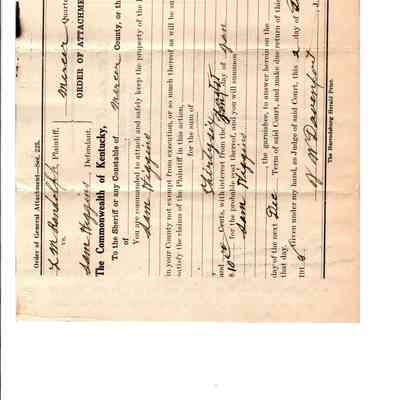 Order of General Attachment—Sec. 225.
Mercer Quarter
L M Randolph, Plaintiff,
vs.
ORDER OF ATTACHME
Sam Wiggins, Defendant,
The Commonwealth of Kentucky,
To the Sheriff or any Constable of Mercer County, or th
of
You are commanded to attach and safely keep the property of the D
Sam Wiggins
in your County not exempt from execution, or so much thereof as will be su
satisfy the claims of the Plaintiff in this action,
for the sum of
Thirty six
and Cents, with interest from the day of Jan
$10.00 for the probable cost thereof, and you will summon
Sam Wiggins
, the garnishee, to answer herein on the
day of the next Dec Term of said Court, and make due return of this
that day.
Given under my hand, as Judge of said Court, this 2 day of
191
W W Davenport, J
The Harrodsburg Herald Print.